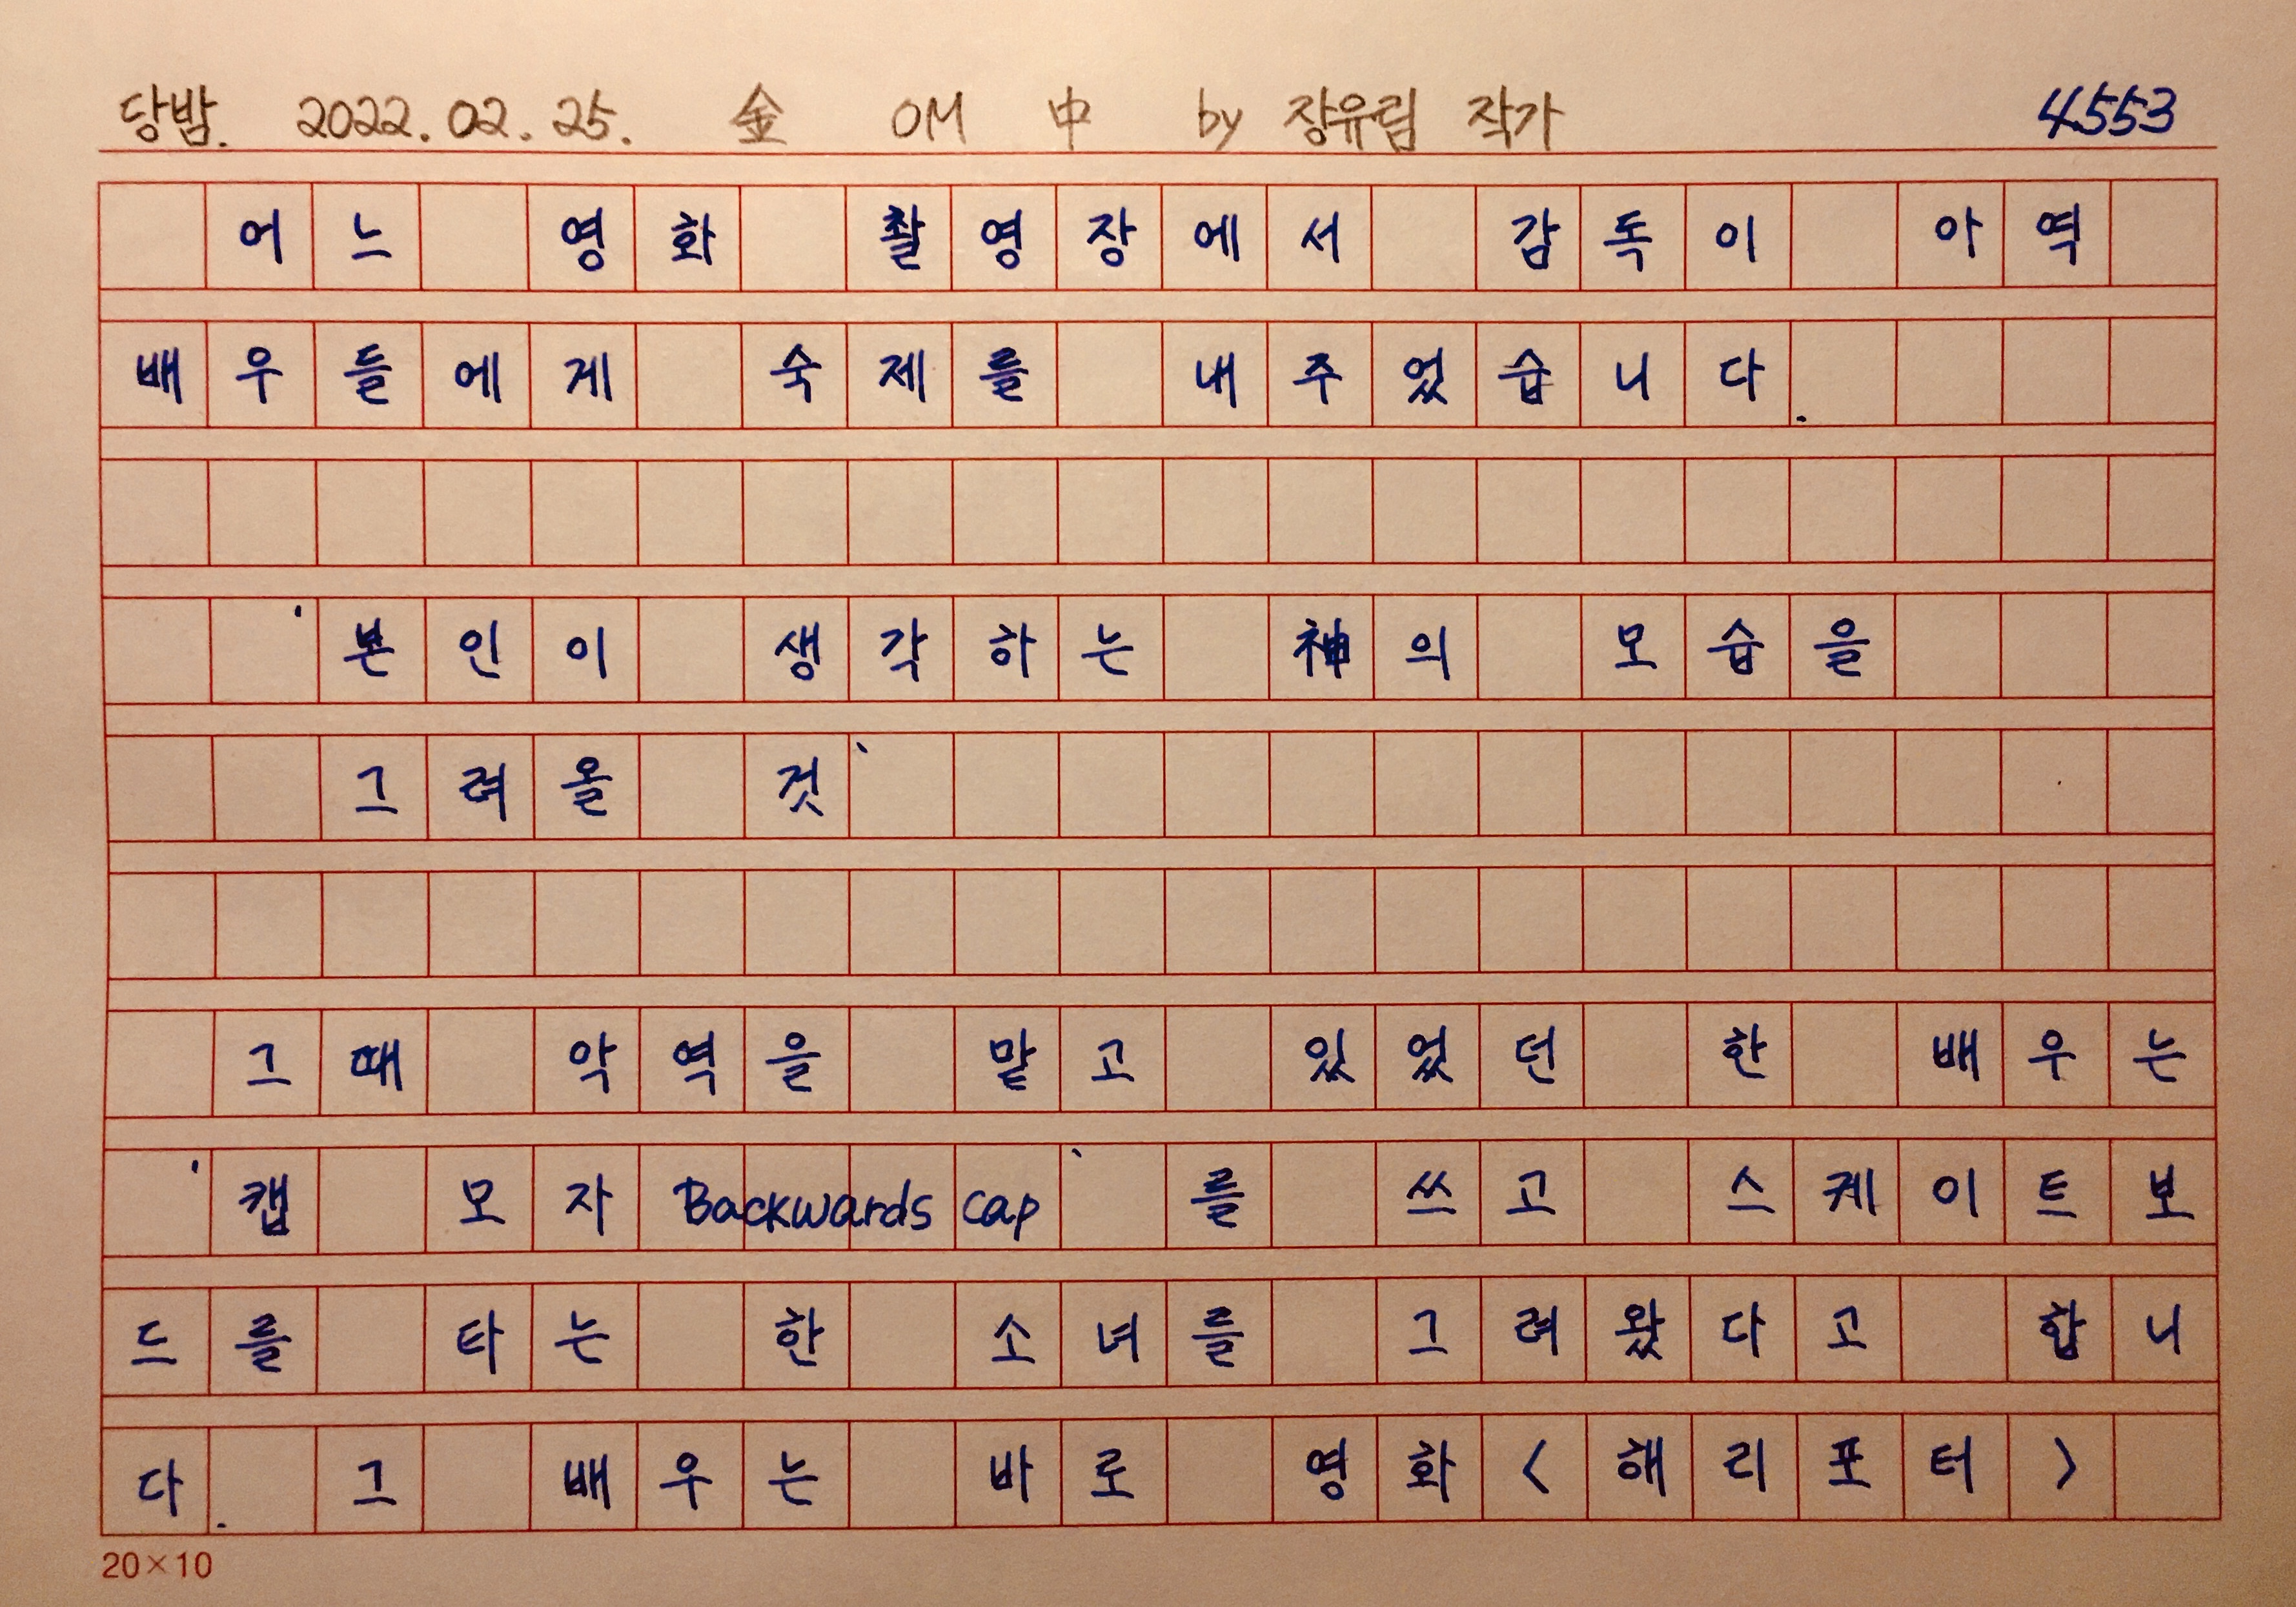 당밤. 2022. 02. 25. 金 OM 中 by 장유림 작가 4553
어느 영화 촬영장에서 감독이 아역
배우들에게 숙제를 내주었습니다.
'본인이 생각하는 神의 모습을
그려올 것'
그때 악역을 맡고 있었던 한 배우는
'캡 모자 Backwards cap'를 쓰고 스케이트보
드를 타는 한 소녀를 그려왔다고 합니
다. 그 배우는 바로 영화<해리포터>
20×10